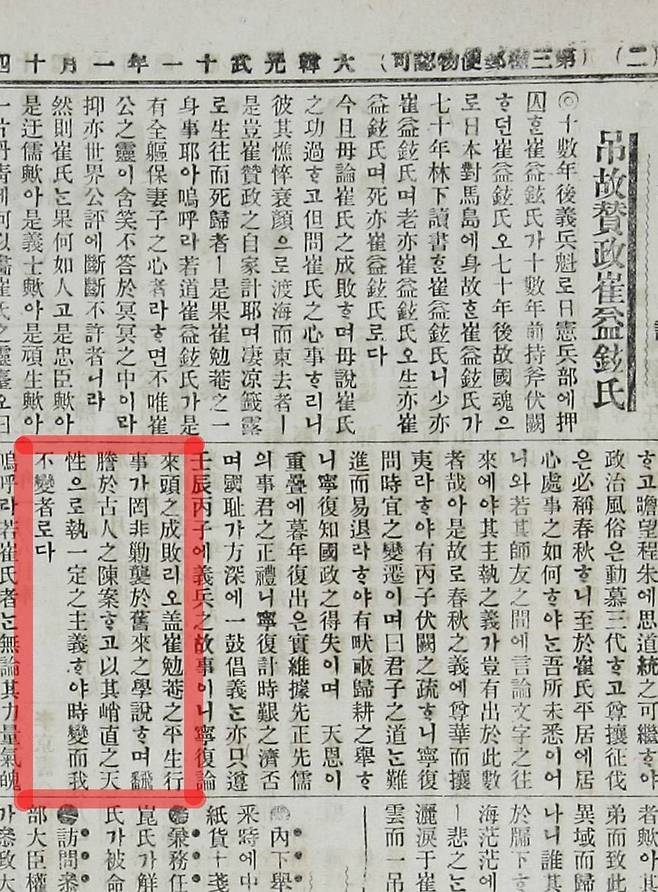 (二) (第三種郵便物認可) 大韓光武十一年一月十四
吊故贊政崔益鉉氏
◎十數年後義兵魁로日憲兵部에押
囚ᄒᆞᆫ崔益鉉氏가十數年前持斧伏闕
ᄒᆞ던崔益鉉氏오七十年後故國魂으
로日本對馬島에身故ᄒᆞᆫ崔益鉉氏가
七十年林下讀書ᄒᆞᆫ崔益鉉氏니少亦
崔益鉉氏며老亦崔益鉉氏오生亦崔
益鉉氏며死亦崔益鉉氏로다
今日毋論崔氏之成敗ᄒᆞ며毋說崔氏
之功過ᄒᆞ고但問崔氏之心事ᄒᆞ리니
彼其憔悴衰顔으로渡海而東去者ㅣ
是豈崔贊政之自家計耶며凄凉露
로生往而死歸者ㅣ是果崔勉菴之一
身事耶아嗚呼라若道崔益鉉氏가是
有全軀保妻子之心者라ᄒᆞ면不唯崔
公之靈이含笑不答於冥冥之中이라
抑亦世界公評에斷斷不許者니라
然則崔氏ᄂᆞᆫ果何如人고是忠臣歟아
是迂儒歟아是義士歟아是頑生歟아
一片丹靑에何以盡崔氏之靈臺오曰
ᄒᆞ고瞻望程朱에思道統之可繼ᄒᆞ야
政治風俗은動慕三代ᄒᆞ고尊攘征伐
은必稱春秋ᄒᆞ니至於崔氏平居에居
心處事之如何ᄒᆞ야ᄂᆞᆫ吾所未悉이어
니와若其師友之間에言論文字之往
來에야其主執之義가豈有出於此數
者哉아是故로春秋之義에尊華而攘
夷라ᄒᆞ야有丙子伏闕之疏ᄒᆞ니寧復
問時宜之變遷이며曰君子之道ᄂᆞᆫ難
進而易退라ᄒᆞ야有畎畝歸耕之擧ᄒᆞ
니寧復知國政之得失이며 天恩이
重疊에暮年復出은實維據先正先儒
의事君之正禮니寧復計時艱之濟否
며國耻가方深에一鼓倡義ᄂᆞᆫ亦只遵
壬辰丙子에義兵之故事이니寧復論
來頭之成敗리오盖崔勉菴之平生行
事가罔非勦襲於舊來之學說ᄒᆞ며飜
謄於古人之陳案ᄒᆞ고以其峭直之天
性으로執一定之主義ᄒᆞ야時變而我
不變者로다
嗚呼라若崔氏者ᄂᆞᆫ無論其力量氣魄
者歟아其
弟而致此
異域而歸
나니誰其
於牖下ᄒᆞ
海茫茫에
ㅣ悲之ᄂᆞᆫ
灑淚于崔
雲而一吊
內下擧
釆時에中
紙貨十
兼務任
崑氏가解
氏가被命
訪問叅
部大臣權
가叅政大